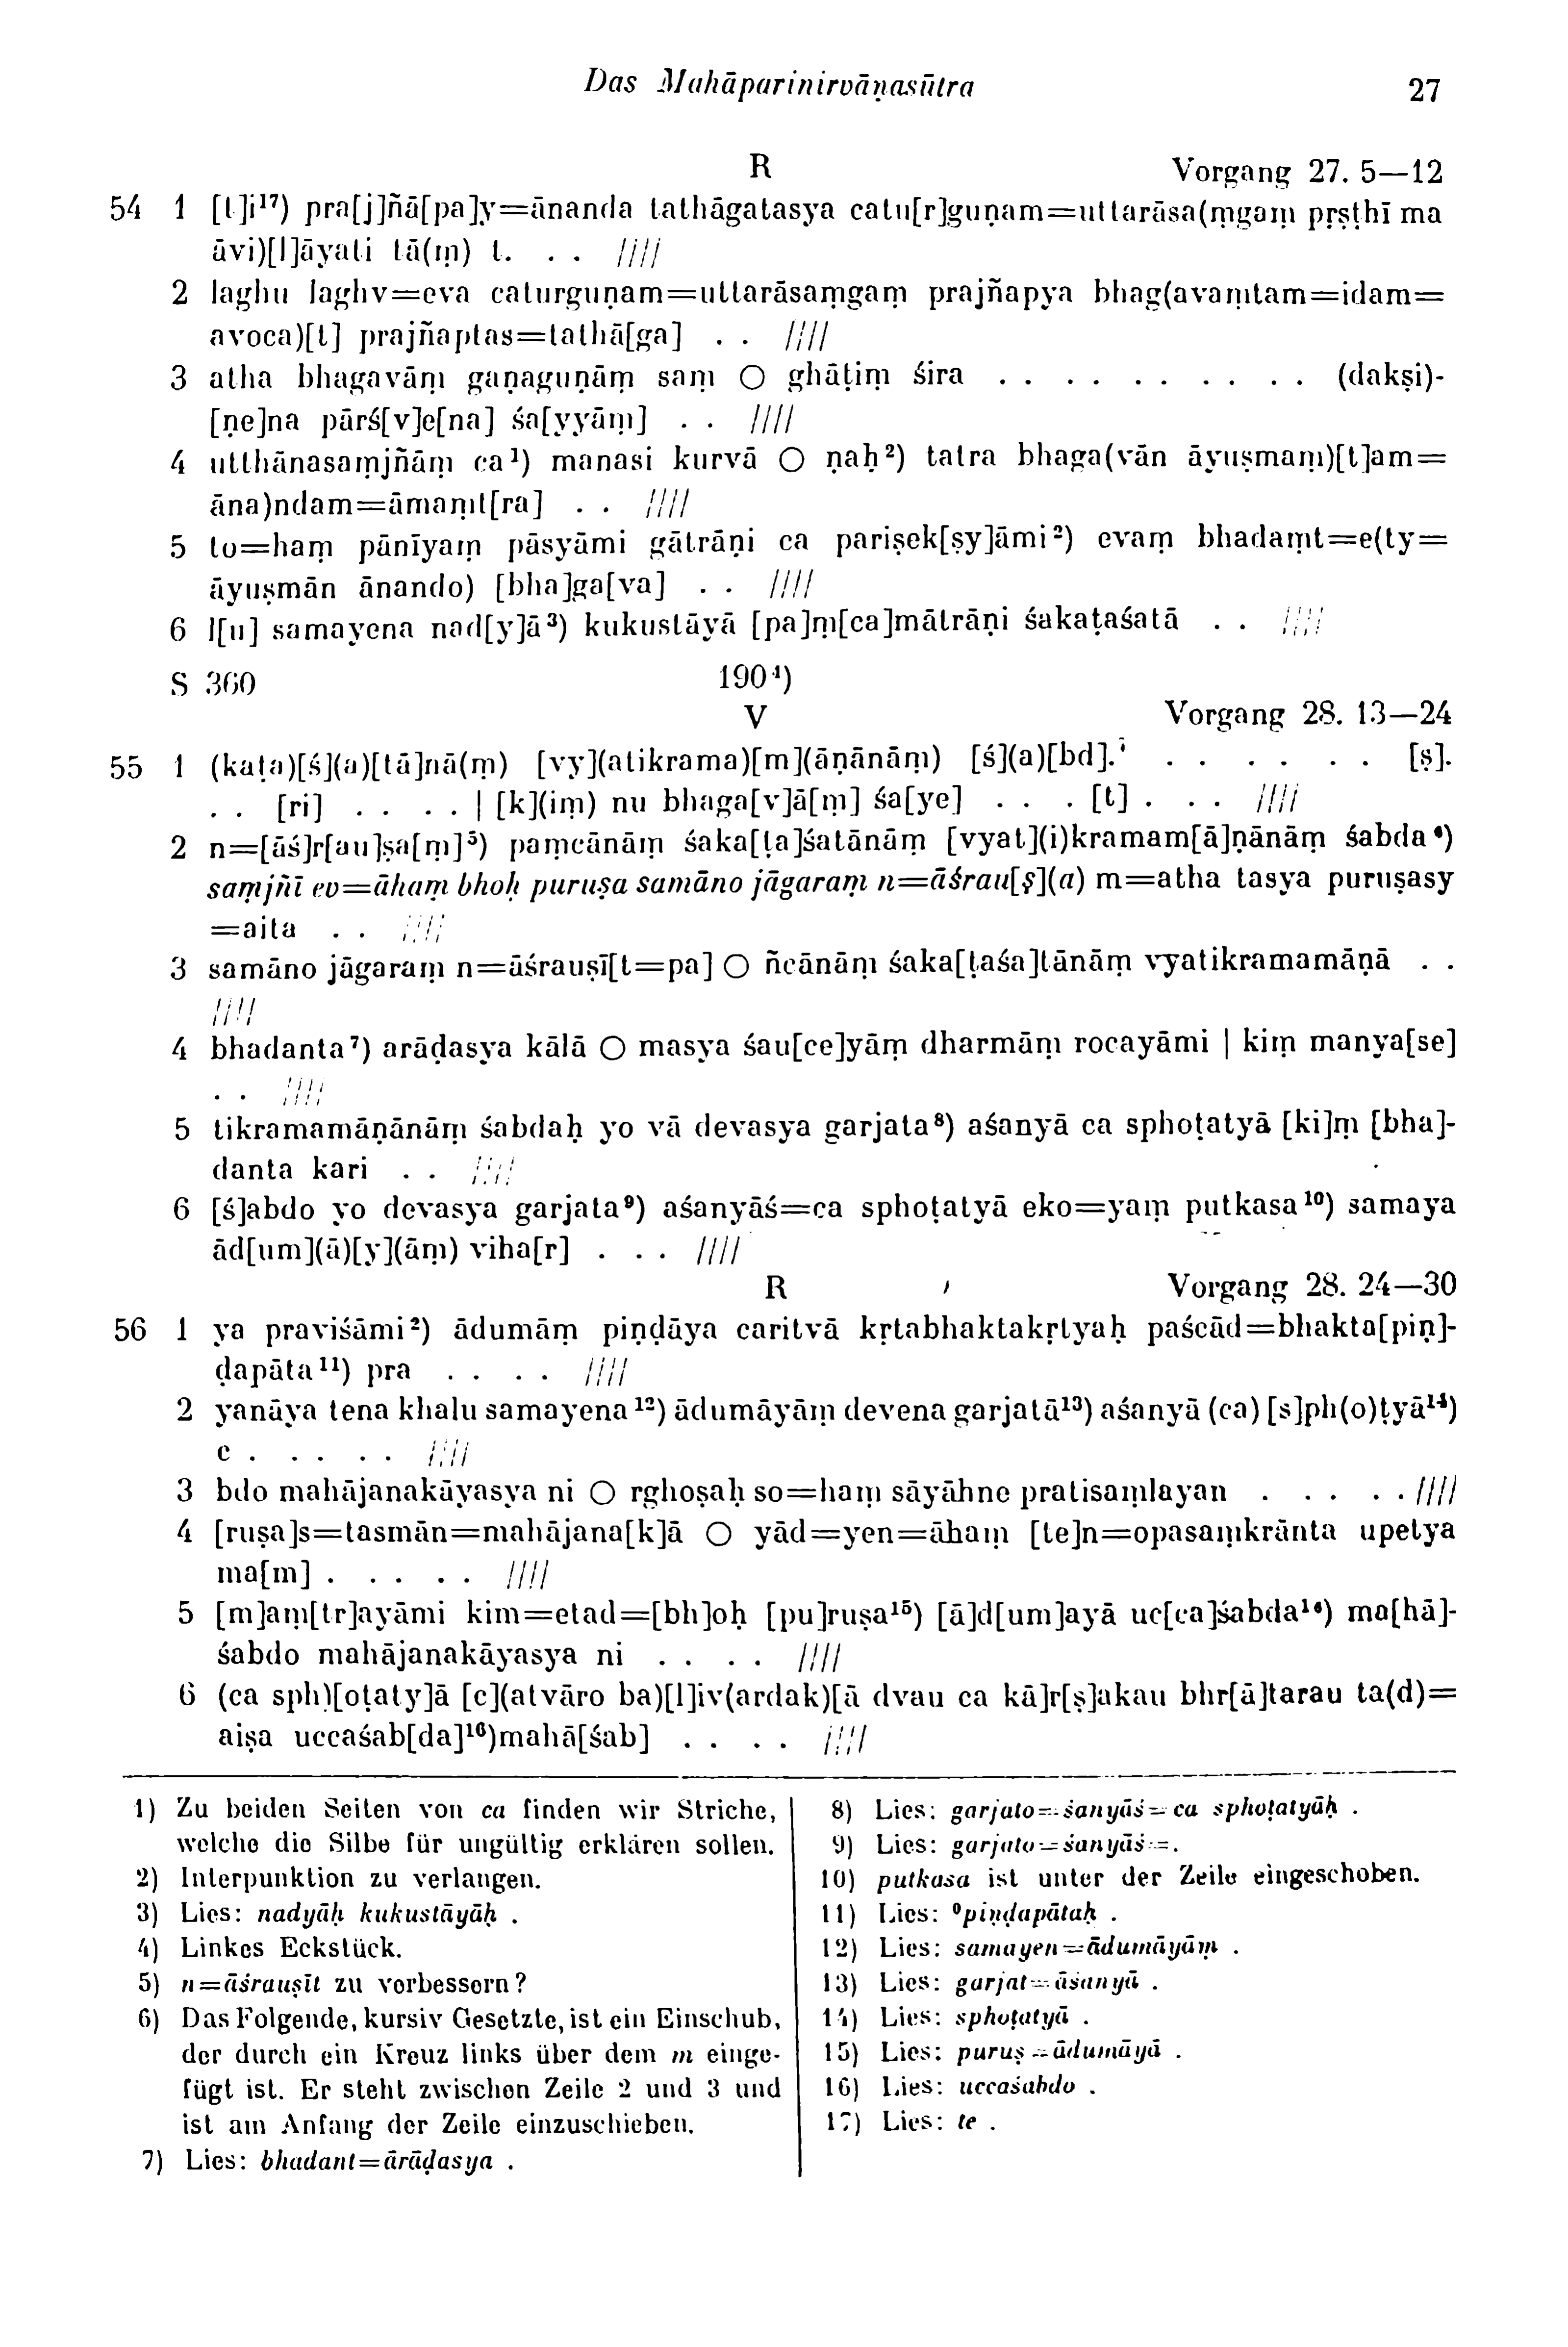 Das Mahāparinirvāṇasūtra 27
R Vorgang 27. 5—12
54 1 [t]i¹⁷) pra[j]ñā[pa]y=ānanda tathāgatasya catu[r]guṇam=uttarāsa(ṃgaṃ pṛṣṭhī ma
āvi)[l]āyati tā(ṃ) t. . . ////
2 laghu laghv=eva caturguṇam=uttarāsaṃgaṃ prajñapya bhag(avaṃtam=idam=
avoca)[t] prajñaptas=tathā[ga] . . ////
3 atha bhagavāṃ gaṇaguṇāṃ saṃ ○ ghāṭiṃ śira . . . . . . . . . . (dakṣi)-
[ṇe]na pārś[v]e[na] śa[yyāṃ] . . ////
4 utthānasaṃjñāṃ ca¹) manasi kurvā ○ ṇaḥ²) tatra bhaga(vān āyuṣmaṃ)[t]am=
āna)ndam=āmaṃt[ra] . . ////
5 to=haṃ pānīyaṃ pāsyāmi gātrāṇi ca pariṣek[ṣy]āmi²) evaṃ bhadaṃt=e(ty=
āyuṣmān ānando) [bha]ga[va] . . ////
6 l[u] samayena nad[y]ā³) kukustāyā [pa]ṃ[ca]mātrāṇi śakaṭaśatā . . ////
S 360 190⁴)
V Vorgang 28. 13—24
55 1 (kaṭa)[ś](a)[tā]nā(ṃ) [vy](atikrama)[m](āṇānāṃ) [ś](a)[bd]. . . . . . . . [ṣ].
. . [ri] . . . . | [k](iṃ) nu bhaga[v]ā[ṃ] śa[ye] . . . [t] . . . ////
2 n=[āś]r[au]ṣa[ṃ]⁵) paṃcānāṃ śaka[ṭa]śatānāṃ [vyat](i)kramam[ā]ṇānāṃ śabda⁶)
saṃjñī ev=āhaṃ bhoḥ puruṣa samāno jāgaraṃ n=āśrau[ṣ](a) m=atha tasya puruṣasy
=aita . . ////
3 samāno jāgaraṃ n=āśrauṣī[t=pa] ○ ñcānāṃ śaka[ṭaśa]tānāṃ vyatikramamāṇā . .
////
4 bhadanta⁷) arāḍasya kālā ○ masya śau[ce]yāṃ dharmāṃ rocayāmi | kiṃ manya[se]
. . ////
5 tikramamāṇānāṃ śabdaḥ yo vā devasya garjata⁸) aśanyā ca sphoṭatyā [ki]ṃ [bha]-
danta kari . . ////
6 [ś]abdo yo devasya garjata⁹) aśanyāś=ca sphoṭatyā eko=yaṃ putkasa¹⁰) samaya
ād[um](ā)[y](āṃ) viha[r] . . . ////
R Vorgang 28. 24—30
56 1 ya praviśāmi²) ādumāṃ piṇḍāya caritvā kṛtabhaktakṛtyaḥ paścād=bhakta[piṇ]-
ḍapāta¹¹) pra . . . . ////
2 yanāya tena khalu samayena¹²) ādumāyāṃ devena garjatā¹³) aśanyā (ca) [s]ph(o)ṭyā¹⁴)
c . . . . . ////
3 bdo mahājanakāyasya ni ○ rghoṣaḥ so=haṃ sāyāhne pratisaṃlayan . . . . . ////
4 [ruṣa]s=tasmān=mahājana[k]ā ○ yād=yen=āhaṃ [te]n=opasaṃkrānta upetya
ma[m] . . . . . ////
5 [m]aṃ[tr]ayāmi kim=etad=[bh]oḥ [pu]ruṣa¹⁵) [ā]d[um]ayā uc[ca]śabda¹⁶) ma[hā]-
śabdo mahājanakāyasya ni . . . . ////
6 (ca sph)[oṭaty]ā [c](atvāro ba)[l]iv(ardak)[ā dvau ca kā]r[ṣ]akau bhr[ā]tarau ta(d)=
aiṣa uccaśab[da]¹⁶)mahā[śab] . . . . ////
1) Zu beiden Seiten von ca finden wir Striche,
welche die Silbe für ungültig erklären sollen.
2) Interpunktion zu verlangen.
3) Lies: nadyāḥ kukustāyāḥ .
4) Linkes Eckstück.
5) n=āśrauṣīt zu verbessern?
6) Das Folgende, kursiv Gesetzte, ist ein Einschub,
der durch ein Kreuz links über dem m einge-
fügt ist. Er steht zwischen Zeile 2 und 3 und
ist am Anfang der Zeile einzuschieben.
7) Lies: bhadant=ārāḍasya .
8) Lies: garjato=śanyāś=ca sphoṭatyāḥ .
9) Lies: garjato=śanyāś=.
10) putkasa ist unter der Zeile eingeschoben.
11) Lies: °piṇḍapātaḥ .
12) Lies: samayen=ādumāyāṃ .
13) Lies: garjat=āśanyā .
14) Lies: sphoṭatyā .
15) Lies: puruṣ=ādumāyā .
16) Lies: uccaśabdo .
17) Lies: te .